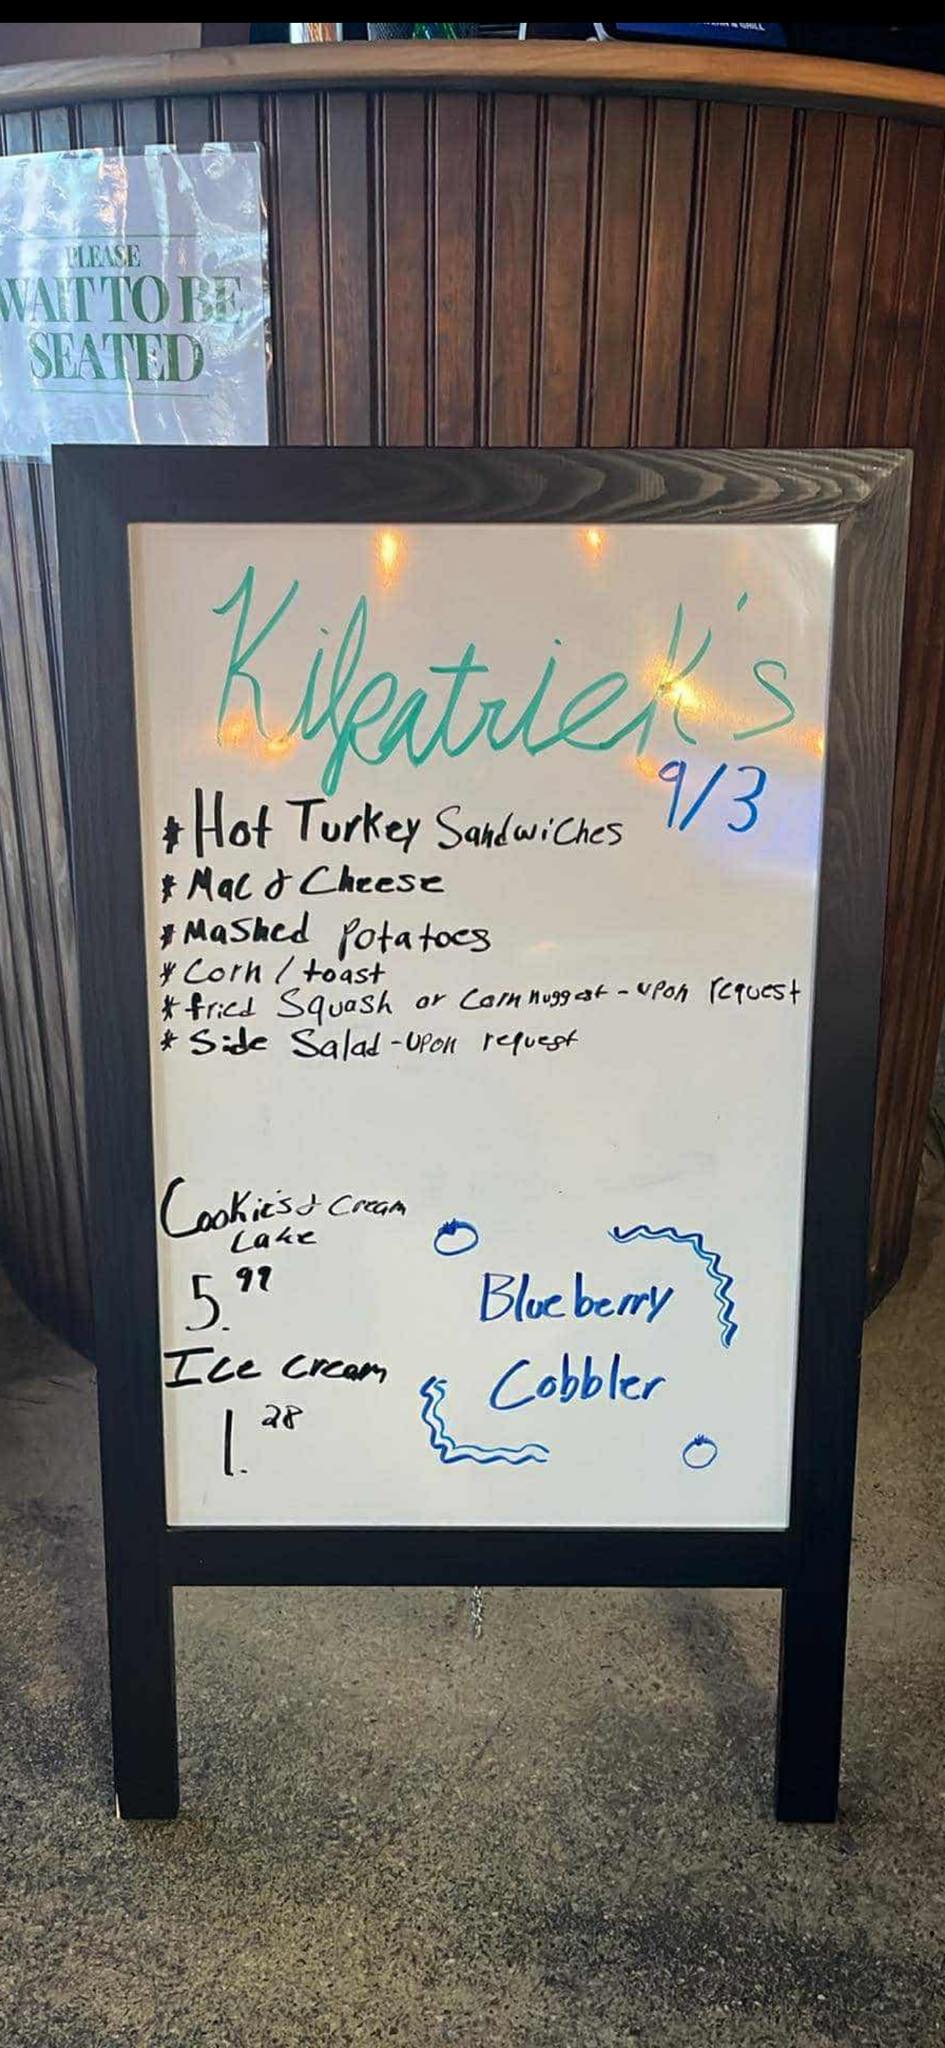 PLEASE
WAIT TO BE
SEATED
Kilpatrick's
9/3
* Hot Turkey Sandwiches
* Mac & Cheese
* Mashed Potatoes
* Corn / toast
* fried Squash or Corn nuggest - upon request
* Side Salad - upon request
Cookie's & Cream
Cake
5.99
Ice cream
1.28
Blueberry
Cobbler